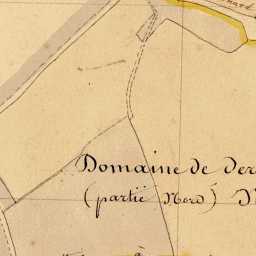 Domaine de der
(partie Nord) N